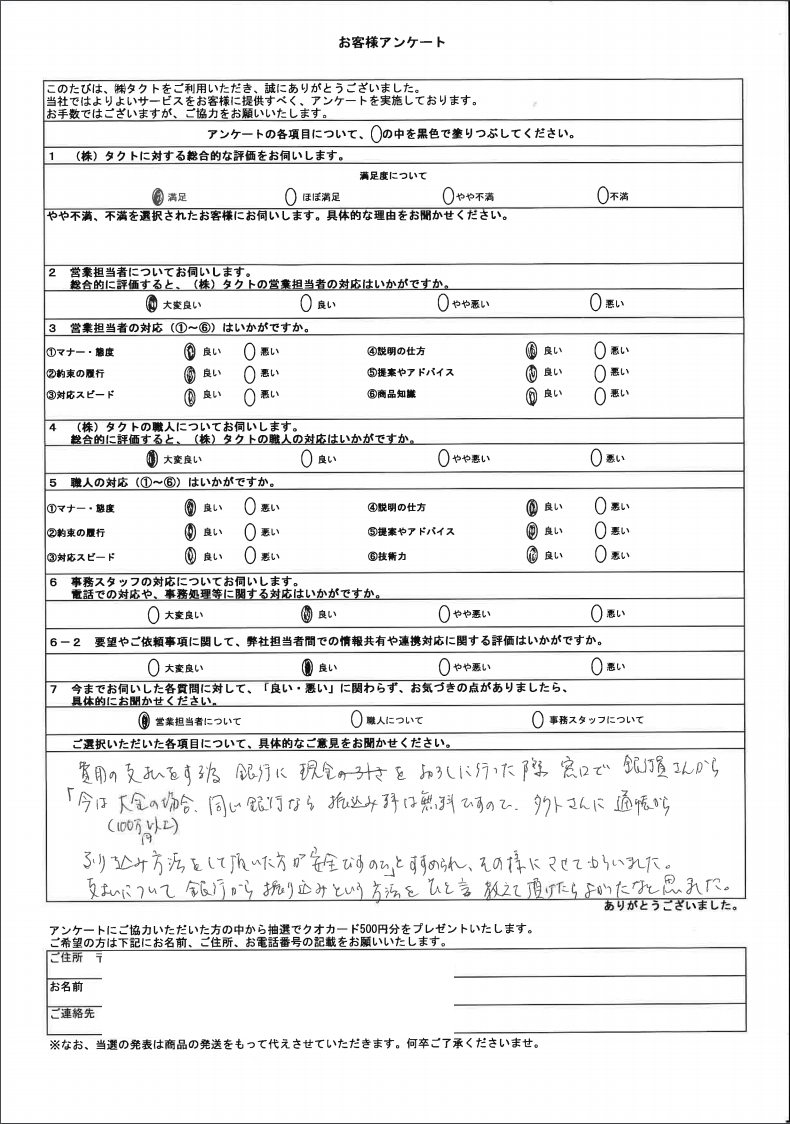 お客様アンケート
このたびは、㈱タクトをご利用いただき、誠にありがとうございました。
当社ではよりよいサービスをお客様に提供すべく、アンケートを実施しております。
お手数ではございますが、ご協力をお願いいたします。
アンケートの各項目について、○の中を黒色で塗りつぶしてください。
1 (株)タクトに対する総合的な評価をお伺いします。
満足度について
満足 ほぼ満足 やや不満 不満
やや不満、不満を選択されたお客様にお伺いします。具体的な理由をお聞かせください。
2 営業担当者についてお伺いします。
総合的に評価すると、(株)タクトの営業担当者の対応はいかがですか。
大変良い 良い やや悪い 悪い
3 営業担当者の対応(①～⑥)はいかがですか。
①マナー・態度 良い 悪い ④説明の仕方 良い 悪い
②約束の履行 良い 悪い ⑤提案やアドバイス 良い 悪い
③対応スピード 良い 悪い ⑥商品知識 良い 悪い
4 (株)タクトの職人についてお伺いします。
総合的に評価すると、(株)タクトの職人の対応はいかがですか。
大変良い 良い やや悪い 悪い
5 職人の対応(①～⑥)はいかがですか。
①マナー・態度 良い 悪い ④説明の仕方 良い 悪い
②約束の履行 良い 悪い ⑤提案やアドバイス 良い 悪い
③対応スピード 良い 悪い ⑥技術力 良い 悪い
6 事務スタッフの対応についてお伺いします。
電話での対応や、事務処理等に関する対応はいかがですか。
大変良い 良い やや悪い 悪い
6－2 要望やご依頼事項に関して、弊社担当者間での情報共有や連携対応に関する評価はいかがですか。
大変良い 良い やや悪い 悪い
7 今までお伺いした各質問に対して、「良い・悪い」に関わらず、お気づきの点がありましたら、
具体的にお聞かせください。
営業担当者について 職人について 事務スタッフについて
ご選択いただいた各項目について、具体的なご意見をお聞かせください。
費用の支払いをする為 銀行に 現金 を おろしに行った際 窓口で 銀行員さんから
「今は 大金の場合、同じ銀行なら 振込み料は無料ですので、タクトさんに 通帳から
(100万以上)
円
ふり込み方法をして頂いた方が安全ですので」とすすめられ、その様にさせてもらいました。
支払いについて 銀行から 振り込みという方法を ひと言 教えて頂けたらよかったなと思いました。
ありがとうございました。
アンケートにご協力いただいた方の中から抽選でクオカード500円分をプレゼントいたします。
ご希望の方は下記にお名前、ご住所、お電話番号の記載をお願いいたします。
ご住所 〒
お名前
ご連絡先
※なお、当選の発表は商品の発送をもって代えさせていただきます。何卒ご了承くださいませ。